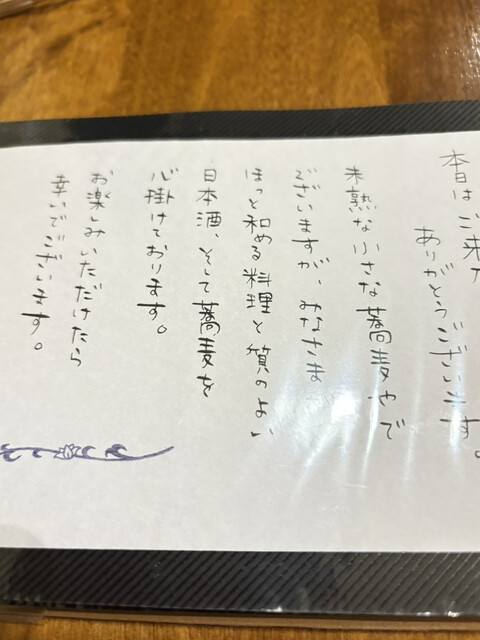 本日はご来店
ありがとうございます。
未熟な小さな蕎麦やで
ございますが、みなさま
ほっと和める料理と質のよい
日本酒、そして蕎麦を
心掛けております。
お楽しみいただけたら
幸いでございます。